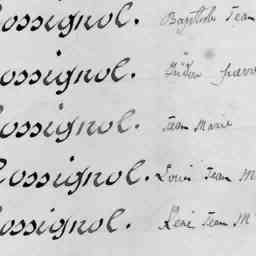 Rossignol. Baptiste Jean
Rossignol. Isidor pierre
Rossignol. Jean Marie
Rossignol. Louis Jean M
Rossignol. René Jean M